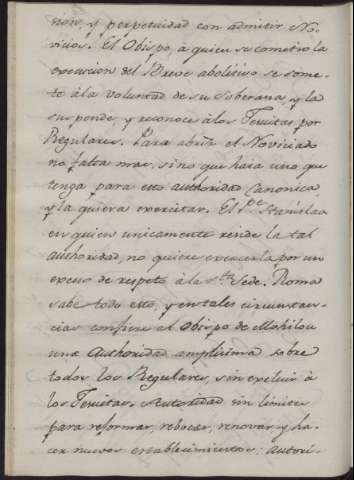 cion, y perpetuidad con admitir No-
vicios. El Obispo, à quien su cometio la
execucion del Breve abolitivo se some-
te à la voluntad de su Soberana, y la
suspende, y reconoce à los Jesuitas por
Regulares. Para abrir el Noviciado
no falta mas, sino que haia uno que
tenga para esto authoridad Canonica,
y la quiera exercitar. El P.e Stanislao
en quien unicamente reside la tal
authoridad, no quiere exercerla por un
exceso de respeto à la S.ta Sede. Roma
sabe todo esto, y en tales circunstan-
cias confiere al Obispo de Mohilou
una Authoridad amplisima sobre
todos los Regulares, sin excluir à
los Jesuitas. Autoridad sin limites
para reformar, rebocar, renovar y ha-
cer nuevos establecimientos; autori-